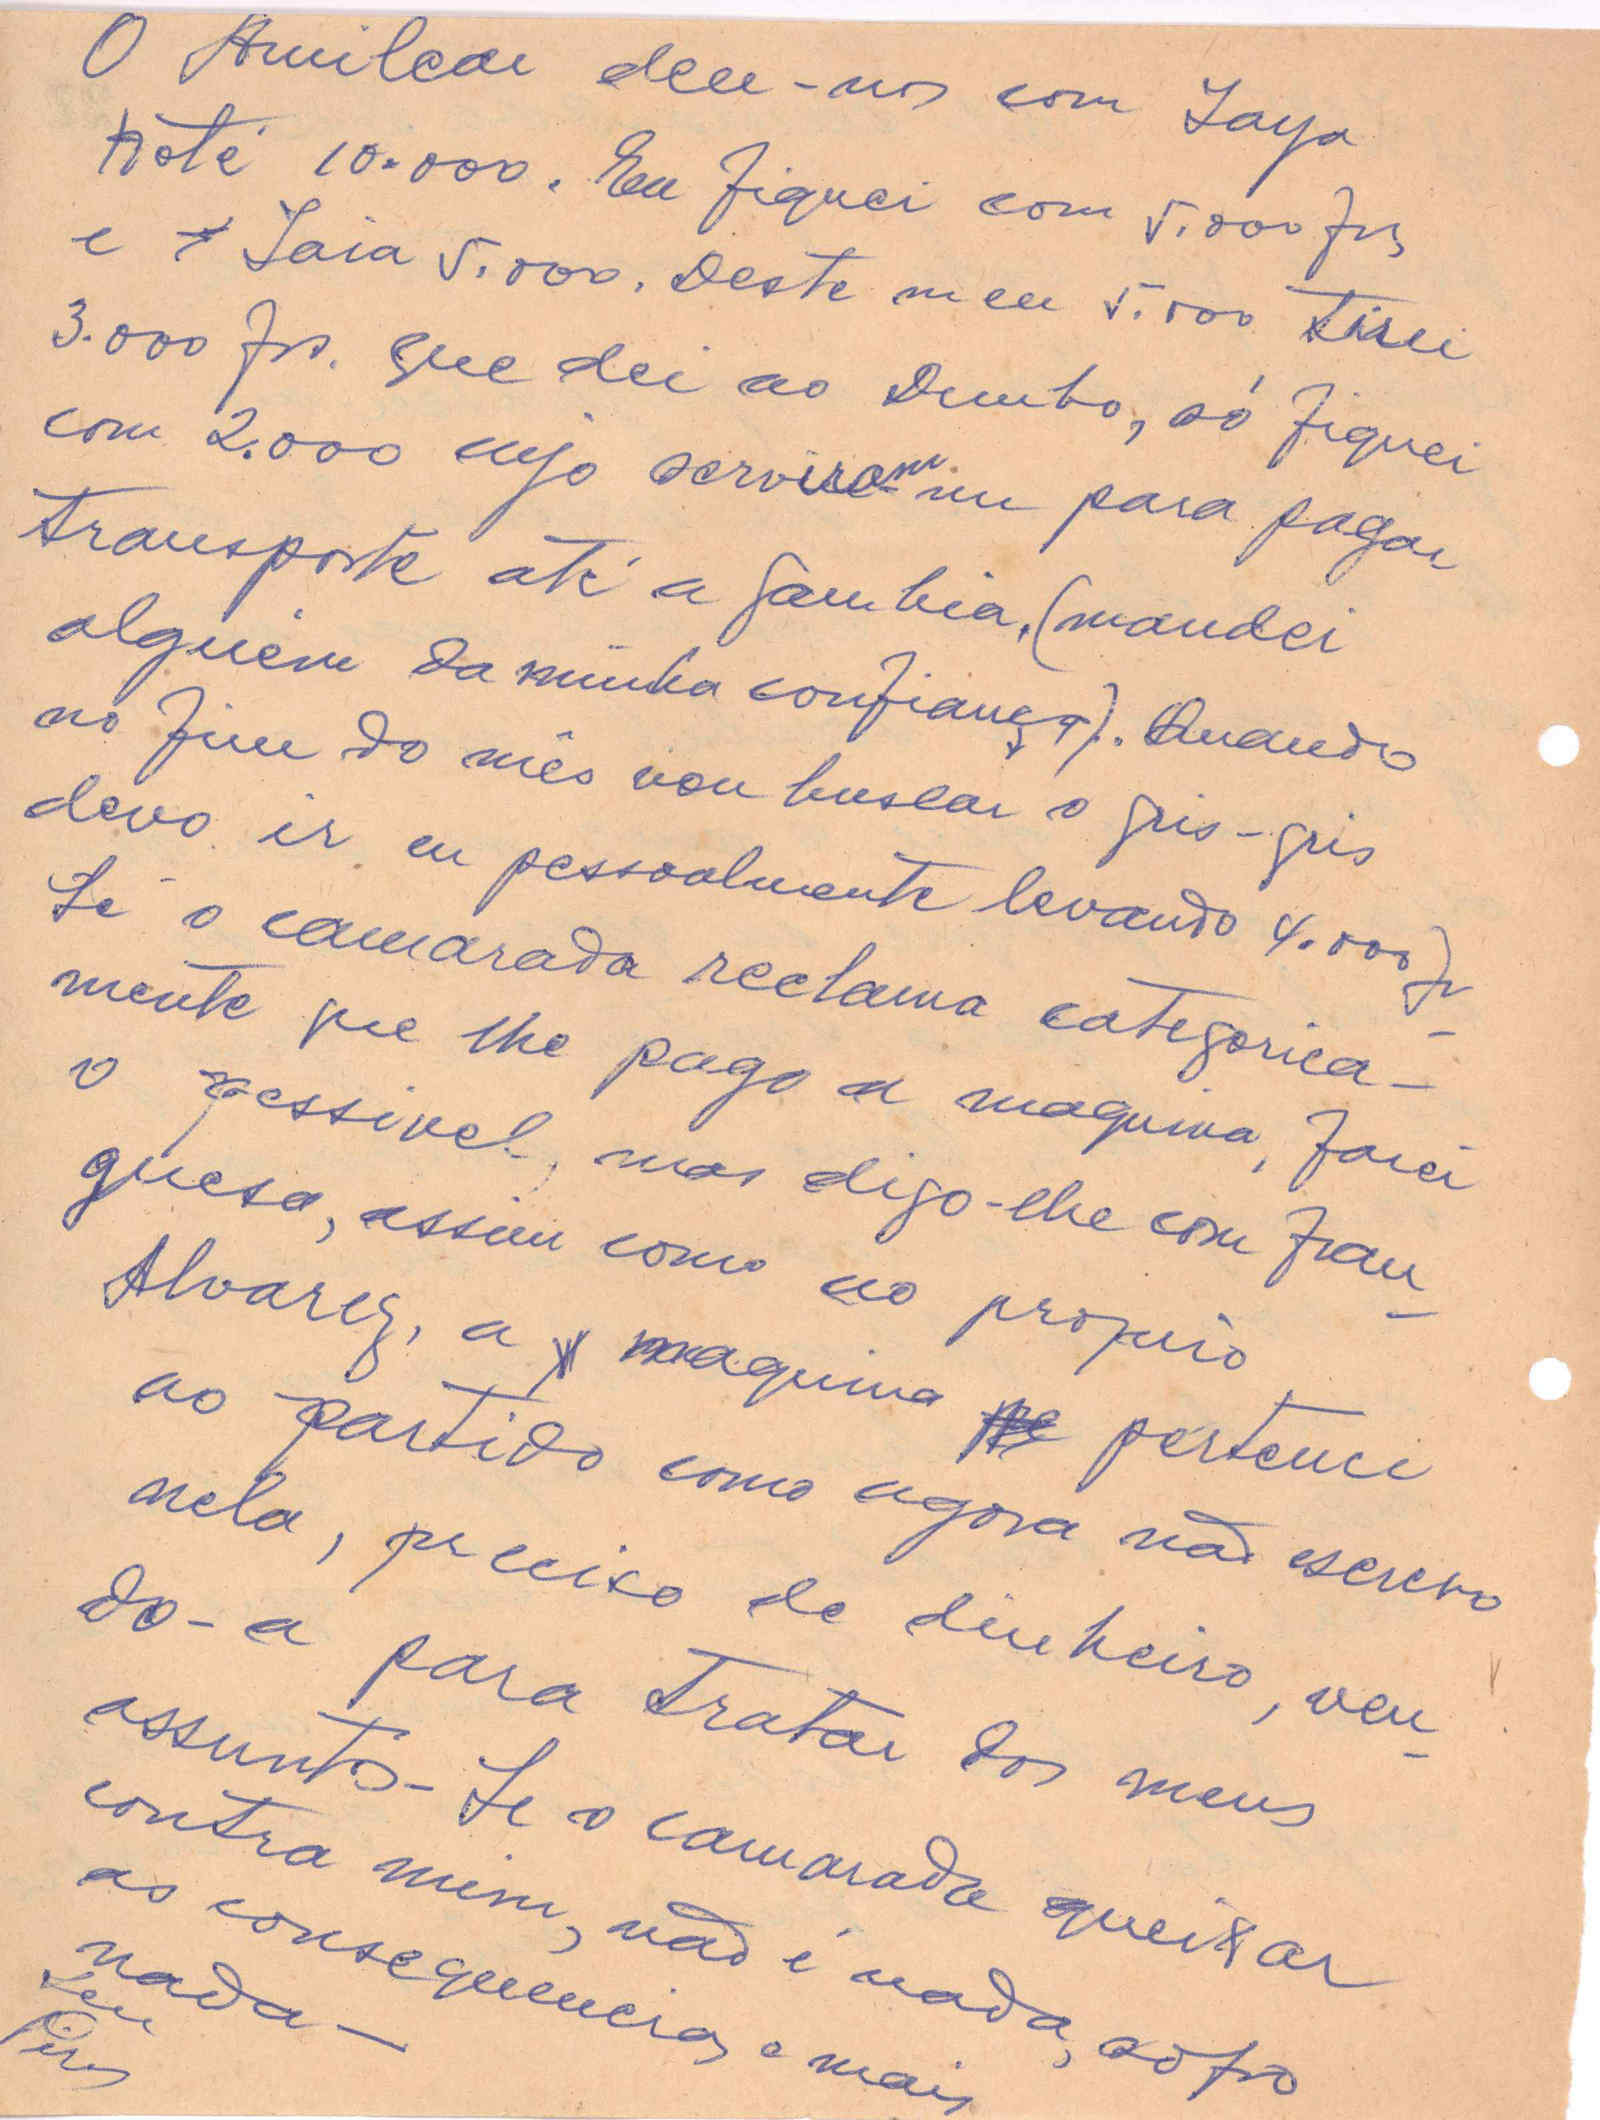 O Amilcar deu-nos com Yaya
Koté 10.000. Eu fiquei com 5.000 frs
e Iaia 5.000. Deste meu 5.000 tirei
3.000 frs. que dei ao Dumbo, só fiquei
com 2.000 cujo serviram-me para pagar
transporte até a Gambia, (mandei
alguém da minha confiança). Quando
no fim do mês vou buscar o gris-gris
devo ir eu pessoalmente levando 4.000 fr
Se o camarada reclama categorica-
mente que lhe pago a maquina, farei
o possivel, mas digo-lhe com fran-
quesa, assim como ao proprio
Alvarez, a maquina pertenci
ao partido como agora não escrevo
nela, preciso de dinheiro, ven-
do-a para tratar dos meus
assuntos- Se o camarada queixar
contra mim, não é nada, sofro
as consequencias e mais
nada-
Seu
Pires